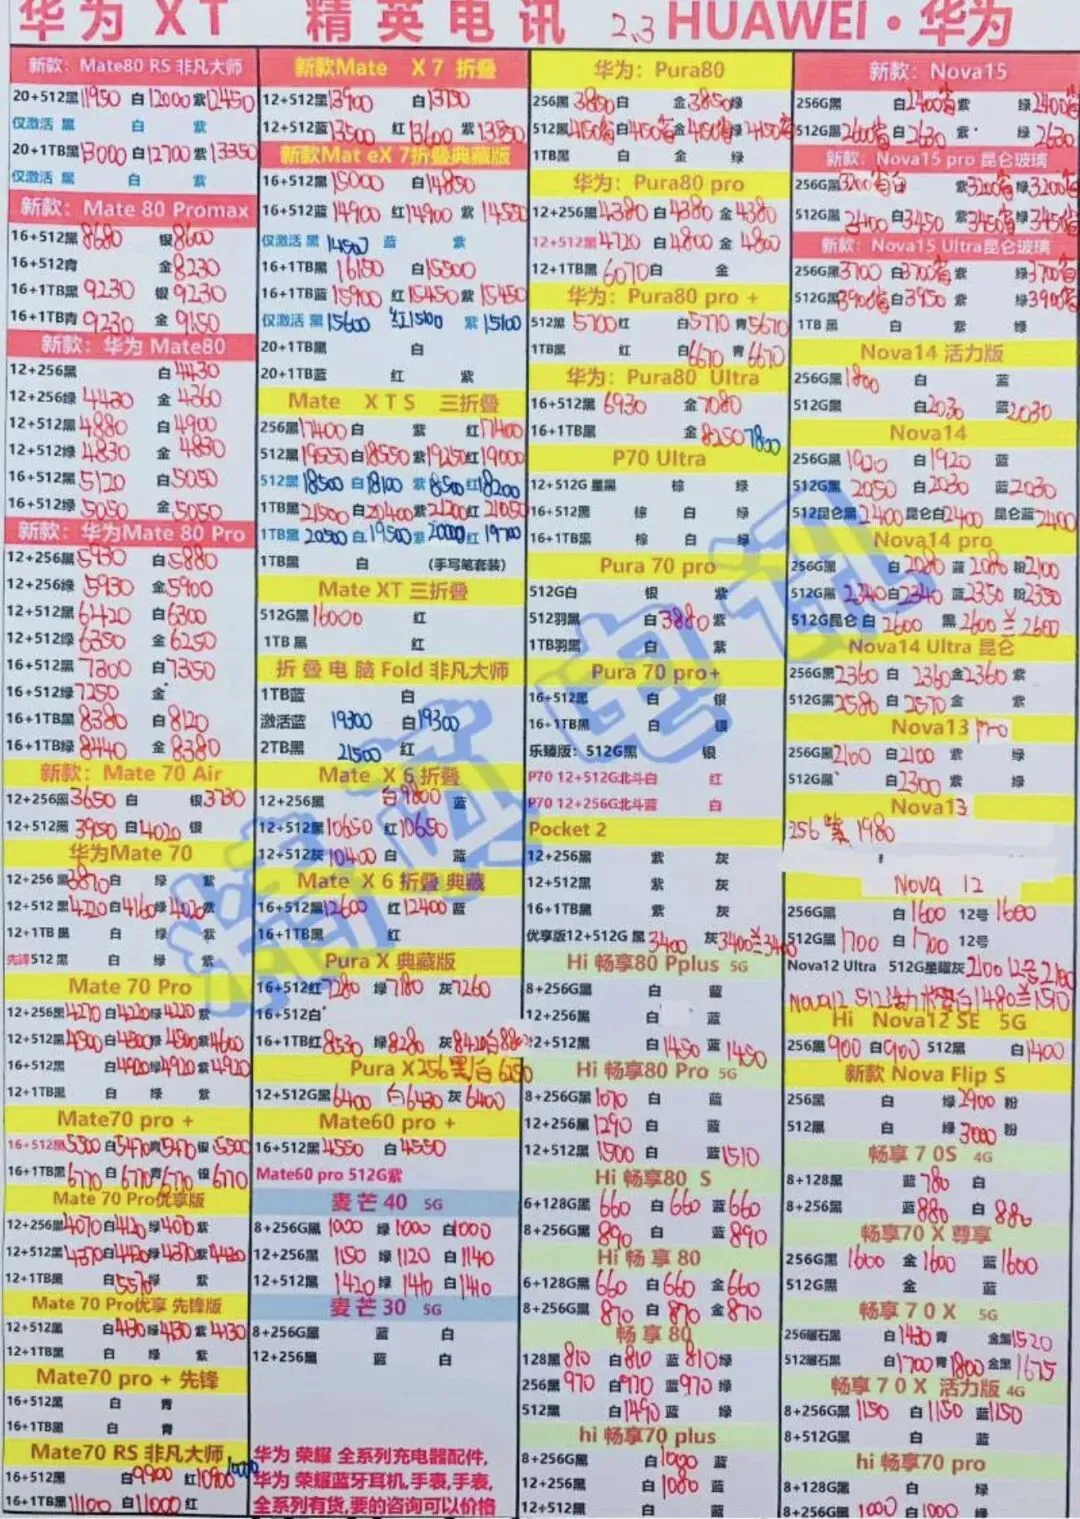 华为 XT 精英电讯 2.3 HUAWEI·华为
新款：Mate80 RS 非凡大师
20+512黑11950 白12000紫12450
仅激活 黑 白 紫
20+1TB黑13000白12700紫13350
仅激活 黑 白 紫
新款：Mate 80 Promax
16+512黑8680 银8600
16+512青 金8230
16+1TB黑9230 银9230
16+1TB青9230 金9150
新款：华为 Mate80
12+256黑 白4430
12+256绿4430 金4360
12+512黑4880 白4900
12+512绿4830 金4830
16+512黑5120 白5050
16+512绿5050 金5050
新款：华为Mate 80 Pro
12+256黑5930 白5880
12+256绿5930 金5900
12+512黑6420 白6300
12+512绿6350 金6250
16+512黑7300 白7350
16+512绿7250 金
16+1TB黑8380 白8120
16+1TB绿8440 金8380
新款：Mate 70 Air
12+256黑3650 白 银3730
12+512黑3950 白4020 银
华为Mate 70
12+256黑3870白 绿 紫
12+512黑4220白4160绿4020紫
12+1TB黑 白 绿 紫
先锋512黑 白 绿 紫
Mate 70 Pro
12+256黑4270白4220绿4220紫
12+512黑4500白4500绿4500紫4600
16+512黑 白4920绿4920紫4920
12+1TB黑 白 绿 紫
Mate70 pro +
16+512黑5500白5470青5470银5500
16+1TB黑6770白6770青6770银6770
Mate 70 Pro优享版
12+256黑4070白4120绿4070紫
12+512黑4370白4420绿4370紫4420
12+1TB黑 白5570绿 紫
Mate 70 Pro优享 先锋版
12+512黑 白4130绿4130紫4130
12+1TB黑 白 绿 紫
Mate70 pro + 先锋
16+512黑 白 青
16+1TB黑 白 青
Mate70 RS 非凡大师
16+512黑 白9900 红10900
16+1TB黑11100 白11000 红
新款Mate X7 折叠
12+512黑13900 白13750
12+512蓝13500 红13600 紫13550
新款Mat eX 7折叠典藏版
16+512黑15000 白14850
16+512蓝14900 红14900 紫14550
仅激活 黑14500 蓝 紫
16+1TB黑16150 白15500
16+1TB蓝15900 红15450紫15450
仅激活 黑15600 红15100 紫15100
20+1TB黑 白
20+1TB蓝 红 紫
Mate XTS 三折叠
256黑17400白 紫 红17400
512黑19550白18550紫19250红19000
512黑18500白18100紫18500红18200
1TB黑21500白20400紫21200红21050
1TB黑20500白19500紫20000红19700
1TB黑 白 (手写笔套装)
Mate XT 三折叠
512G黑16000 红
1TB黑 红
折叠电脑Fold 非凡大师
1TB蓝 白
激活蓝 19300 白19300
2TB黑 21500 红
Mate X 6 折叠
12+256黑 白9800 蓝
12+512黑10650 红10650
12+512灰10400白 蓝
Mate X 6 折叠 典藏
16+512黑12600 红12400蓝
16+1TB黑 红
Pura X 典藏版
16+512红7280 绿7180 灰7260
16+512白
16+1TB红8530 绿8280 灰8420白8880
Pura X256黑/白6250
12+512G黑6400 白6430 灰6400
Mate60 pro +
16+512黑4550 白4550
Mate60 pro 512G紫
麦芒40 5G
8+256G黑 1000 绿1000 白1000
12+256黑 1150 绿1120 白1140
12+512黑 1420绿1410 白1410
麦芒30 5G
8+256G黑 蓝 白
12+256黑 蓝 白
华为 荣耀 全系列充电器配件,
华为 荣耀蓝牙耳机,手表,手表,
全系列有货,要的咨询可以价格
华为：Pura80
256黑3850白 金3850绿
512黑4150省白4150省金4150省绿4150省
1TB黑 白 金 绿
华为：Pura80 pro
12+256黑4380 白4380 金4380
12+512黑4720 白4800 金4800
12+1TB黑6070白 金
华为：Pura80 pro +
512黑5700红 白5770青5670
1TB黑 红 白6670青6670
华为：Pura80 Ultra
16+512黑 6930 金7080
16+1TB黑 金8250 7800
P70 Ultra
12+512G 星黑 棕 绿
16+512黑 棕 白 绿
16+1TB黑 棕 白 绿
Pura 70 pro
512G白 银 紫
512羽黑 白3880紫
1TB羽黑 白 紫
Pura 70 pro+
16+512黑 白 银
16+1TB黑 白 银
乐臻版：512G黑 银
P70 12+512G北斗白 红
P70 12+256G北斗蓝 白
Pocket 2
12+256黑 紫 灰
12+512黑 紫 灰
16+1TB黑 紫 灰
优享版12+512G 黑3400 灰3400兰3400
Hi 畅享80 Pplus 5G
8+256G黑 白 蓝
12+256黑 白 蓝
12+512黑 白1450 蓝1450
Hi 畅享80 Pro 5G
8+256G黑1070 白 蓝
12+256黑1290 白 蓝
12+512黑1500 白 蓝1510
Hi 畅享80 S
6+128G黑 660 白660 蓝660
8+256G黑 890 白 蓝890
Hi 畅享80
6+128G黑660 白660 金660
8+256G黑870 白870 金870
畅享80
128黑810 白810 蓝810绿
256黑970 白970 蓝970 绿
512黑 白1490蓝 绿
hi 畅享70 plus
8+256G黑 白1000 蓝
12+256黑 白1080 蓝
12+512黑 白 蓝
新款：Nova15
256G黑 白2400省紫 绿2400省
512G黑2600省白2630 紫 绿2630
新款：Nova15 pro 昆仑玻璃
256G黑3200省白 紫3200省绿3200省
512G黑3400白3450 紫3450省绿3450省
新款：Nova15 Ultra昆仑玻璃
256G黑3700 白3700省紫 绿3700省
512G黑3900省白3950 紫 绿3900省
1TB黑 白 紫 绿
Nova14 活力版
256G黑1800 白 蓝
512G黑 白2030 蓝2030
Nova14
256G黑1920 白1920 蓝
512G黑2050 白2030 蓝2030
512昆仑黑2400昆仑白2400 昆仑蓝2400
Nova14 pro
256G黑 白2080 蓝2080粉2100
512G黑2340白2340 蓝2350粉2350
512G昆仑 白2600 黑2600兰2600
Nova14 Ultra 昆仑
256G黑2360 白 2360金2360紫
512G黑2580 白 2570金 紫
Nova13 Pro
256G黑2100 白2100 紫 绿
512G黑 白2300 紫 绿
Nova13
256 紫 1980
Nova 12
256G黑 白1600 12号1600
512G黑1700 白1700 12号
Nova12 Ultra 512G星耀灰2100 12号2100
Hi Nova12 SE 5G
256黑900 白900 512黑 白1400
新款 Nova Flip S
256黑 白 绿2900粉
512黑 白 绿3000粉
畅享70S 4G
8+128黑 蓝780 白
8+256黑 蓝880 白880
畅享70 X 尊享
256G黑1600 金1600 蓝1600
512G黑 金 蓝
畅享70X 5G
256曜石黑 白1430青 金黑1520
512曜石黑 白1700青1800金黑1675
畅享70X 活力版4G
8+256G黑1150 白1150 蓝1150
8+512G黑 白 蓝
hi 畅享70 pro
8+128G黑 白 绿
8+256G黑1000 白1000 绿
精英电讯